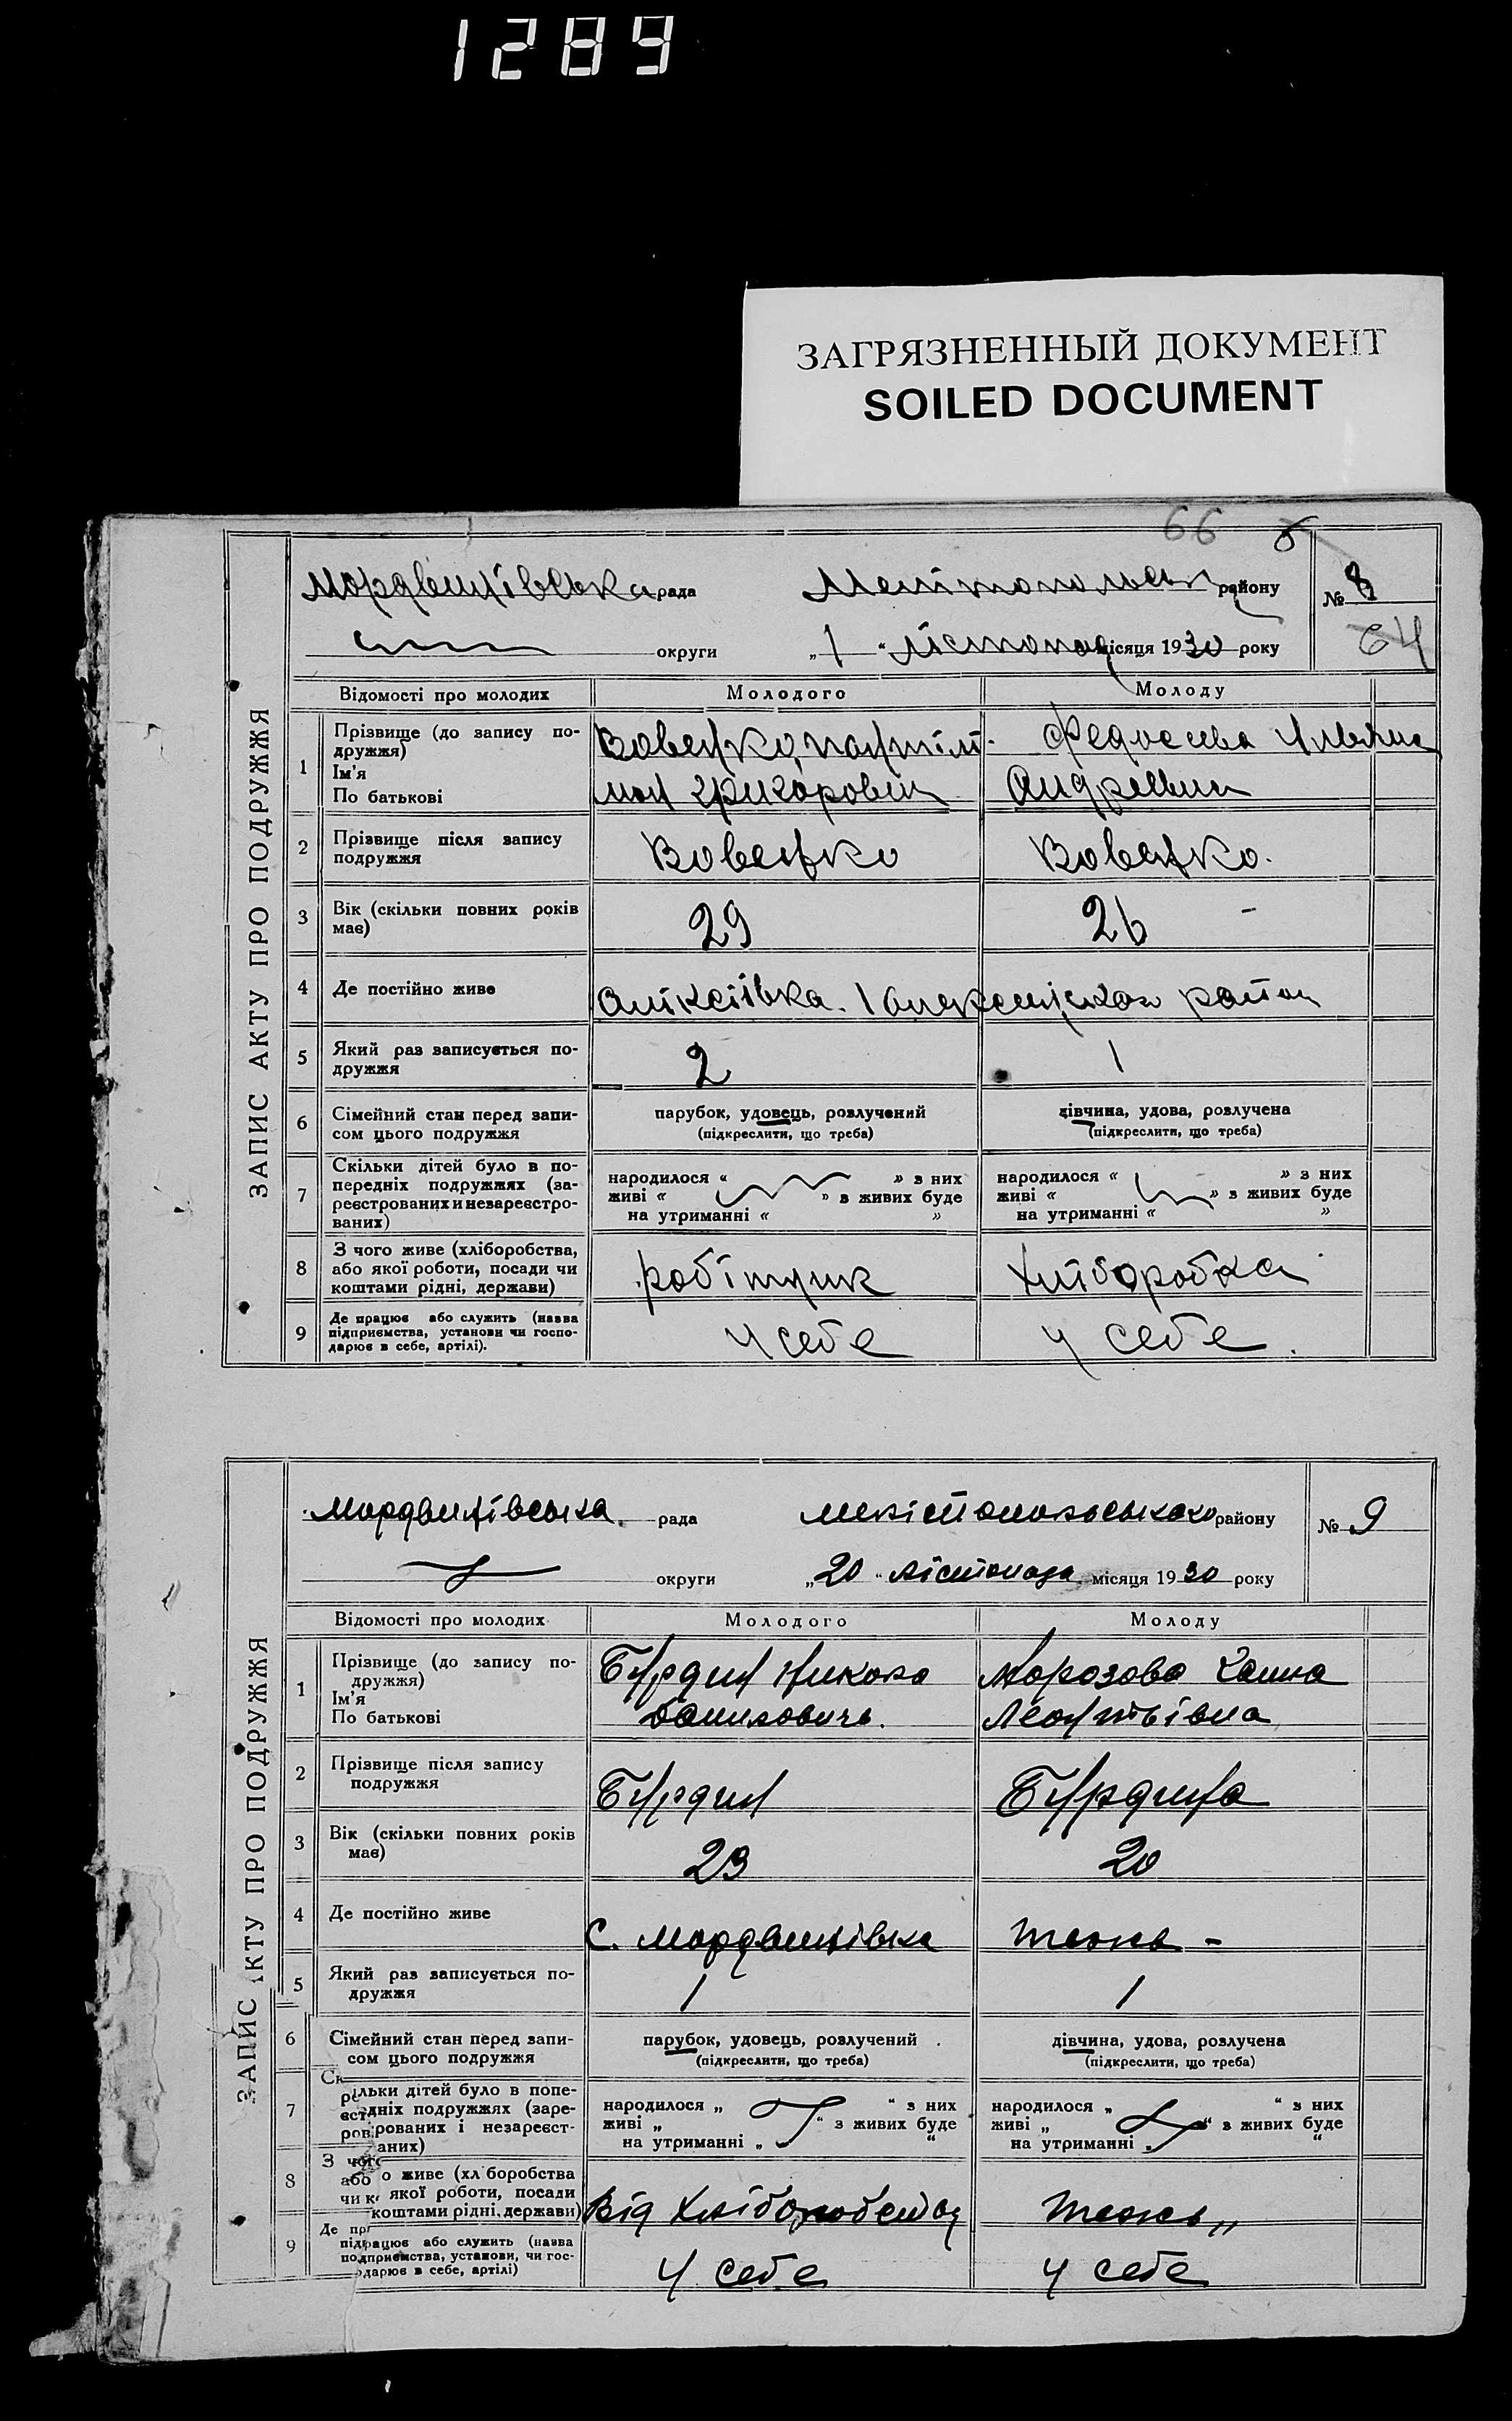 1289
ЗАГРЯЗНЕННЫЙ ДОКУМЕНТ
SOILED DOCUMENT
66 8
Мордвинівська рада Мелітопольськ району № 8
округи „1“ лістопад місяця 1930 року 64
ЗАПИС АКТУ ПРО ПОДРУЖЖЯ
Відомості про молодих Молодого Молоду
1 Прізвище (до запису подружжя)
Ім'я
По батькові
Григорович
Федосева
Андреевна
2 Прізвище після запису
подружжя
3 Вік (скільки повних років
має) 29 26
4 Де постійно живе
5 Який раз записується по-
дружжя 2 1
6 Сімейний стан перед запи-
сом цього подружжя
парубок, удовець, розлучений
(підкреслити, що треба)
дівчина, удова, розлучена
(підкреслити, що треба)
7 Скільки дітей було в по-
передніх подружжях (за-
реєстрованих и незареєстро-
ваних)
народилося « » з них
живі « » з живих буде
на утриманні « »
народилося « » з них
живі « » з живих буде
на утриманні « »
8 З чого живе (хліборобства,
або якої роботи, посади чи
коштами рідні, держави)
робітник хліборобка
9 Де працює або служить (назва
підприємства, установи чи госпо-
дарює в себе, артілі).
у себе у себе.
Мордвинівська рада Мелістопольського району № 9
округи „20“ лістопада місяця 1930 року
ЗАПИС АКТУ ПРО ПОДРУЖЖЯ
Відомості про молодих Молодого Молоду
1 Прізвище (до запису по-
дружжя)
Ім'я
По батькові
Бурдин Никола
Данилович.
Морозова Ганна
Леонтьівна
2 Прізвище після запису
подружжя
Бурдин Бурдина
3 Вік (скільки повних років
має) 23 20
4 Де постійно живе с. Мордвинівка тежь -
5 Який раз записується по-
дружжя 1 1
6 Сімейний стан перед запи-
сом цього подружжя
парубок, удовець, розлучений
(підкреслити, що треба)
дівчина, удова, розлучена
(підкреслити, що треба)
7 Скільки дітей було в попе-
редніх подружжях (заре-
єстрованих і незареєст-
рованих)
народилося „ “ з них
живі „ “ з живих буде
на утриманні „ “
народилося „ “ з них
живі „ “ з живих буде
на утриманні „ “
8 З чого живе (хл боробства
або якої роботи, посади
чи коштами рідні, держави)
Від Хліборобства тежь „
9 Де працює або служить (назва
підприємства, установи, чи гос-
подарює в себе, артілі)
у себе у себе